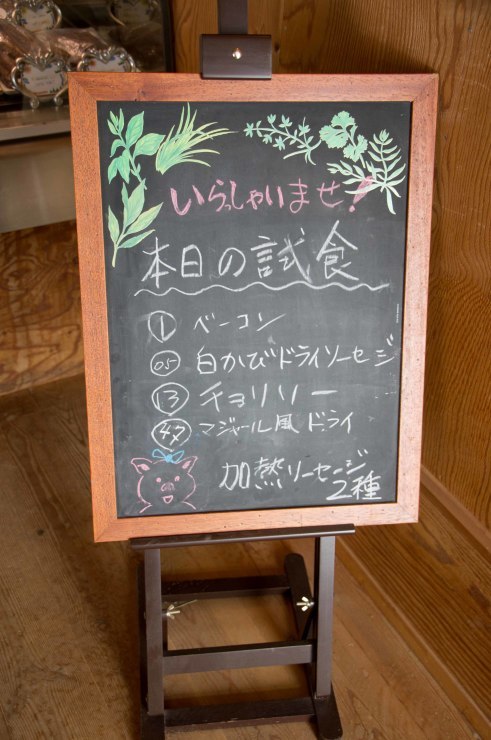 いらっしゃいませ!
本日の試食
① ベーコン
05 白かびドライソーセージ
⑬ チョリソー
㊼ マジャール風ドライ
加熱ソーセージ
2種